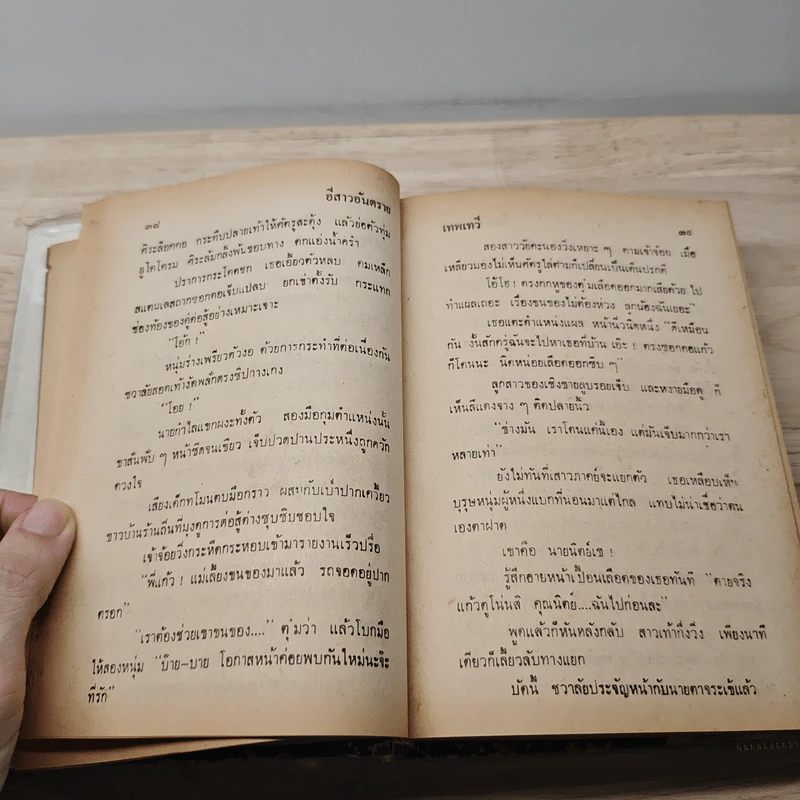 ๓๘ อีสาวอันตราย
ศิระล็อคคอ กระทืบปลายเท้าให้ศัตรูสะดุ้ง แล้วย่อตัวทุ่ม
ยูโดโครม ศิระล้มกลิ้งพ้นขอบทาง ตกแอ่งน้ำครำ
ปราการกระโดดชก เธอเอี้ยวตัวหลบ คมเหล็ก
สแตนเลสถากซอกคอเจ็บแปลบ ยกเข่าตั้งรับ กระแทก
ช่องท้องของคู่ต่อสู้อย่างเหมาะเจาะ
“โอ๊ก !”
หนุ่มร่างเพรียวตัวงอ ด้วยการกระทำที่ต่อเนื่องกัน
ชวาลัยสอดเท้างัดพลั่กตรงซิปกางเกง
“โอย !”
นายกำไลแขกผงะทั้งตัว สองมือกุมตำแหน่งนั้น
ขาสั่นพั่บ ๆ หน้าซีดจนเขียว เจ็บปวดปานประหนึ่งถูกควัก
ดวงใจ
เสียงเด็กทโมนตบมือกราว ผสมกับเป่าปากเควี้ยว
ชาวบ้านร้านถิ่นที่มุงดูการต่อสู้ต่างซุบซิบชอบใจ
เจ้าจ้อยวิ่งกระหืดกระหอบเข้ามารายงานเร็วปรื๋อ
“พี่แก้ว ! แม่เลี้ยงขนของมาแล้ว รถจอดอยู่ปาก
ตรอก”
“เราต้องช่วยเขาขนของ....” ตุ๋มว่า แล้วโบกมือ
ให้สองหนุ่ม “บ๊าย-บาย โอกาสหน้าค่อยพบกันใหม่นะจ๊ะ
ที่รัก”
เทพเทวี ๓๙
สองสาววัยคะนองวิ่งเหยาะ ๆ ตามเจ้าจ้อย เมื่อ
เหลียวมองไม่เห็นศัตรูไล่ตามก็เปลี่ยนเป็นเดินปรกติ
“โอ้โฮ ! ตรงกกหูของตุ๋มเลือดออกมากเสียด้วย ไป
ทำแผลเถอะ เรื่องขนของไม่ต้องห่วง ลูกน้องฉันเยอะ”
เธอแตะตำแหน่งแผล หน้านิ่วนิดหนึ่ง “ดีเหมือน
กัน งั้นสักครู่ฉันจะไปหาเธอที่บ้าน เอ๊ะ ! ตรงซอกคอแก้ว
ก็โดนนะ นิดหน่อยเลือดออกซิบ ๆ”
ลูกสาวของเชิงชายลูบรอยเจ็บ และหงายมือดู ก็
เห็นสีแดงจาง ๆ ติดปลายนิ้ว
“ช่างมัน เราโดนแค่นี้เอง แต่มันเจ็บมากกว่าเรา
หลายเท่า”
ยังไม่ทันที่เสาวภาคย์จะแยกตัว เธอเหลือบเห็น
บุรุษหนุ่มผู้หนึ่งแบกที่นอนมาแต่ไกล แทบไม่น่าเชื่อว่าตน
เองตาฝาด
เขาคือ นายนิตย์เช !
รู้สึกอายหน้าเปื้อนเลือดของเธอทันที “ตายจริง
แก้วดูโน่นสิ คุณนิตย์....ฉันไปก่อนละ”
พูดแล้วก็หันหลังกลับ สาวเท้ากึ่งวิ่ง เพียงนาที
เดียวก็เลี้ยวลับทางแยก
บัดนี้ ชวาลัยประจัญหน้ากับนายตาจระเข้แล้ว